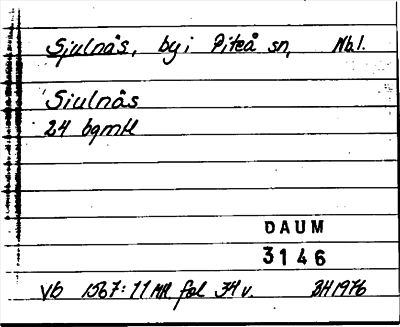 Sjulnäs, by i Piteå sn, Nb l.
Siulnås
24 bgmtl
DAUM
3146
Vb 1567:11 MR fol 34 v. BH 1976